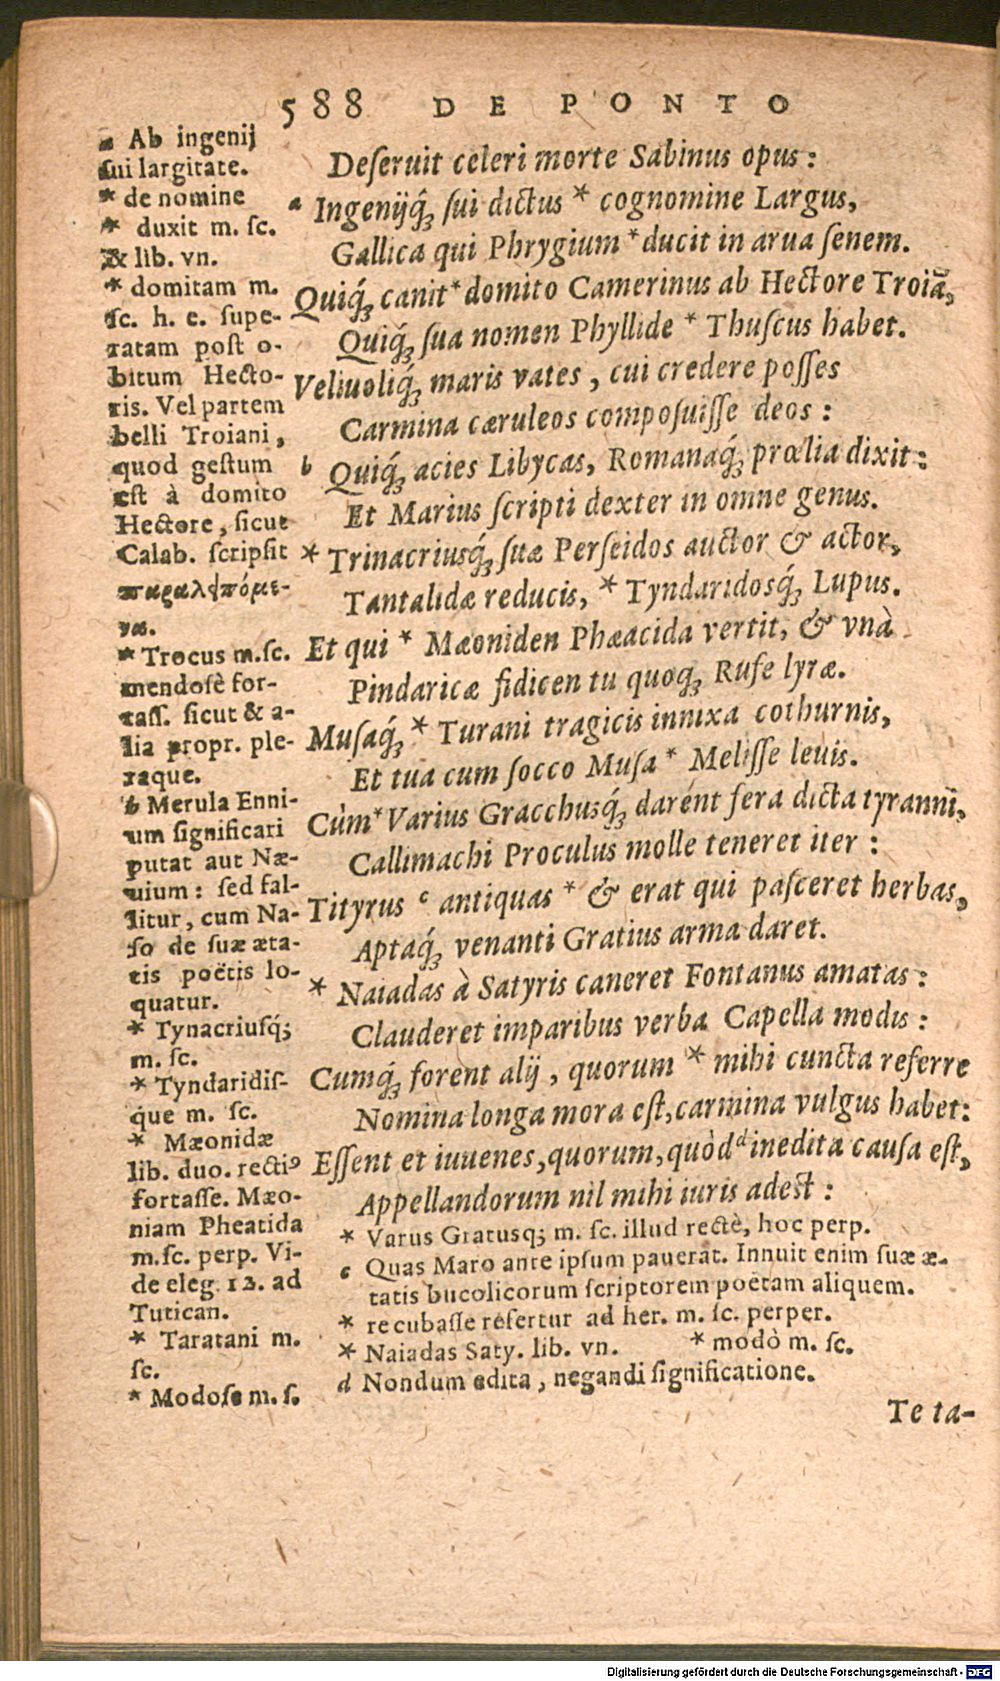 588 DE PONTO
a Ab ingenij
sui largitate.
* de nomine
* duxit m. sc.
& lib. vn.
* domitam m.
sc. h. e. supe-
ratam post o-
bitum Hecto-
ris. Vel partem
belli Troiani,
quod gestum
est à domito
Hectore, sicut
Calab. scripsit
παραλϕπόμε-
να.
* Trocus m.sc.
mendosè for-
tass. sicut & a-
lia propr. ple-
raque.
b Merula Enni-
um significari
putat aut Næ-
uium: sed fal-
litur, cum Na-
so de suæ æta-
tis poëtis lo-
quatur.
* Tynacriusq́;
m. sc.
* Tyndaridis-
que m. sc.
* Mæonidæ
lib. duo. rectiꝰ
fortasse. Mæo-
niam Pheatida
m.sc. perp. Vi-
de eleg. 12. ad
Tutican.
* Taratani m.
sc.
* Modose m. s.
Deseruit celeri morte Sabinus opus:
a Ingenijq́; sui dictus * cognomine Largus,
Gallica qui Phrygium * ducit in arua senem.
Quiq́; canit * domito Camerinus ab Hectore Troiā,
Quiq́; sua nomen Phyllide * Thuscus habet.
Veliuoliq́; maris vates, cui credere posses
Carmina cæruleos composuisse deos:
b Quiq́; acies Libycas, Romanaq́; prœlia dixit:
Et Marius scripti dexter in omne genus.
* Trinacriusq́; suæ Perseidos auctor & actor,
Tantalidæ reducis, * Tyndaridosq́; Lupus.
Et qui * Mæoniden Phæacida vertit, & vnà
Pindaricæ fidicen tu quoq; Rufe lyræ.
Musaq́; * Turani tragicis innixa cothurnis,
Et tua cum socco Musa * Melisse leuis.
Cùm * Varius Gracchusq́; darént fera dicta tyranni,
Callimachi Proculus molle teneret iter:
Tityrus c antiquas * & erat qui pasceret herbas,
Aptaq́; venanti Gratius arma daret.
* Naiadas à Satyris caneret Fontanus amatas:
Clauderet imparibus verba Capella modis:
Cumq́; forent alij, quorum * mihi cuncta referre
Nomina longa mora est, carmina vulgus habet:
Essent et iuuenes, quorum, quòd d inedita causa est,
Appellandorum nil mihi iuris adest:
* Varus Gratusq; m. sc. illud rectè, hoc perp.
c Quas Maro ante ipsum pauerat. Innuit enim suæ æ-
tatis bucolicorum scriptorem poëtam aliquem.
* recubasse refertur ad her. m. sc. perper.
* Naiadas Saty. lib. vn. * modò m. sc.
d Nondum edita, negandi significatione.
Te ta-
Digitalisierung gefördert durch die Deutsche Forschungsgemeinschaft - DFG